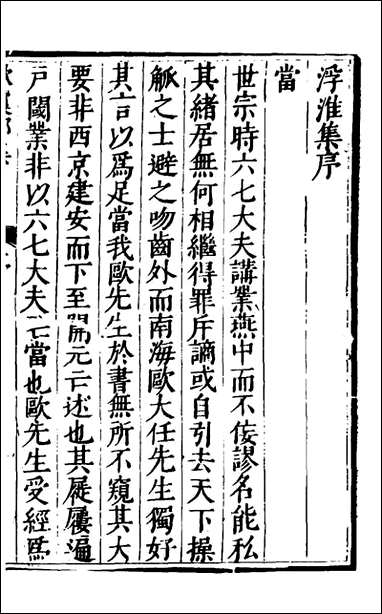 浮淮集序
當
世宗時六七大夫講業燕中而不佞謬名能私
其緒居無何相繼得罪斥謫或自引去天下操
觚之士避之吻齒外而南海歐大任先生獨好
其言以爲足當我歐先生於書無所不窺其大
要非西京建安而下至開元亡述也其屣屨遍
戸閾業非以六七大夫亡當也歐先生受經爲